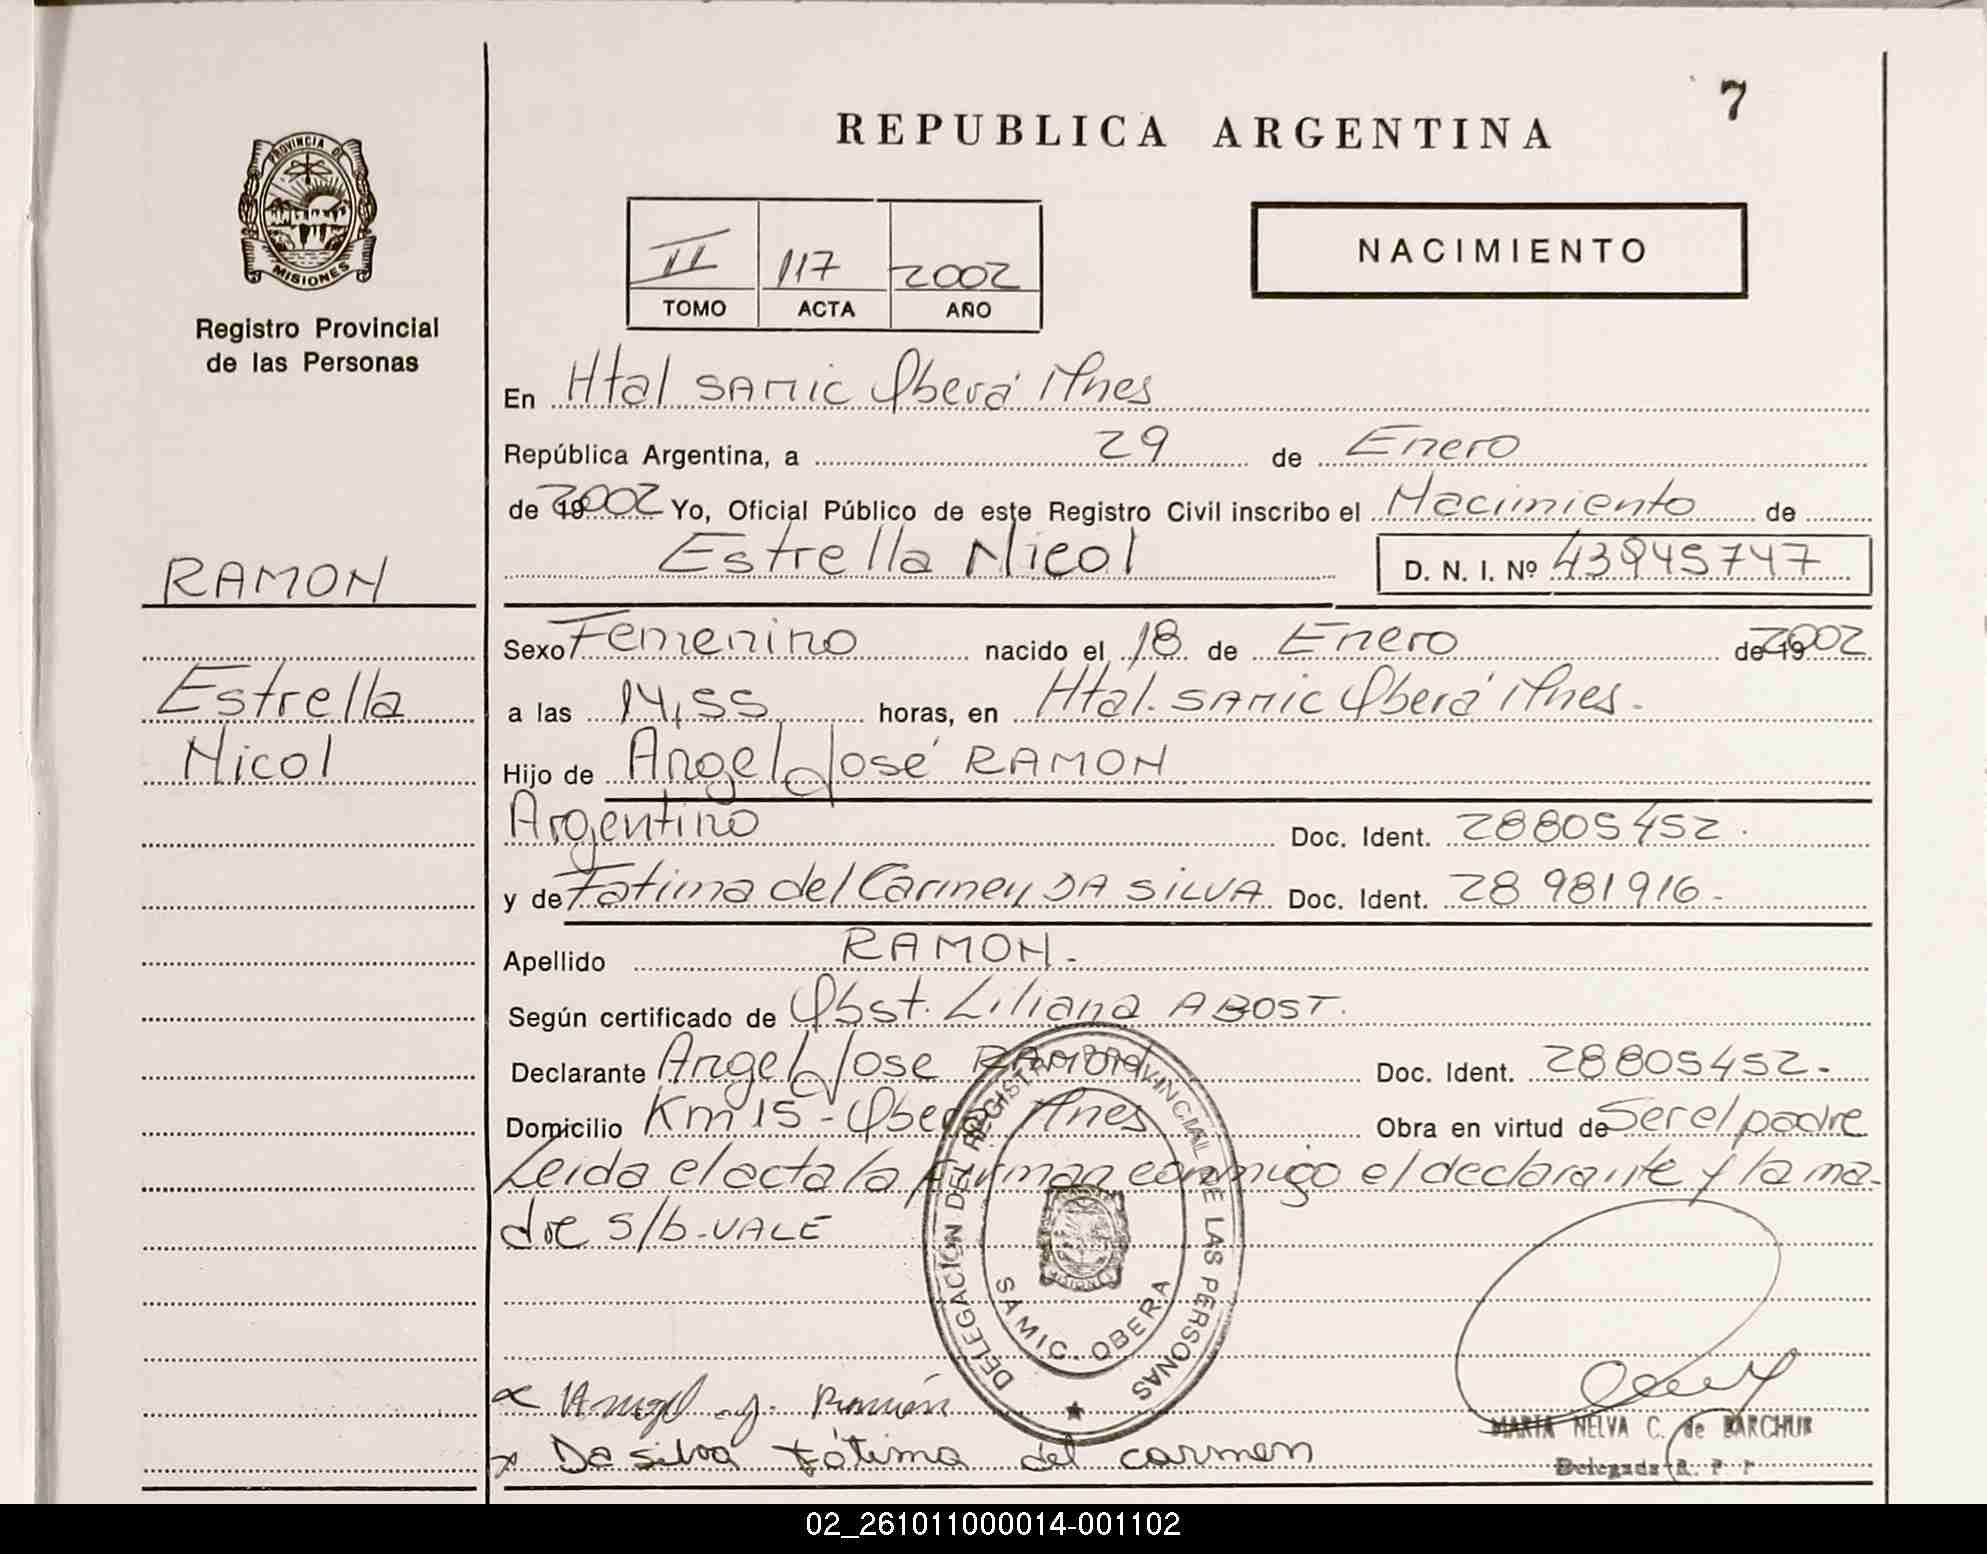 7
REPUBLICA ARGENTINA
PROVINCIA DE
MISIONES
Registro Provincial
de las Personas
II 117 2002
TOMO ACTA AÑO
NACIMIENTO
En Htal SAMIC Oberá Mnes
República Argentina, a 29 de Enero
de 2002 Yo, Oficial Público de este Registro Civil inscribo el Nacimiento de
Estrella Nicol D. N. I. Nº 43945747
RAMON
Estrella
Nicol
Sexo Femenino nacido el 18 de Enero de 2002
a las 14,55 horas, en Htal. SAMIC Oberá Mnes.
Hijo de Angel José RAMON
Argentino Doc. Ident. 28805452.
y de Fatima del Carmen DA SILVA Doc. Ident. 28 981916.
Apellido RAMON.
Según certificado de Obst. Liliana ABOST.
Declarante Angel Jose RAMON Doc. Ident. 28805452.
Domicilio Km 15 - Oberá Mnes Obra en virtud de Ser el padre
Leida el acta la firman conmigo el declarante y la ma-
dre S/b. VALE
DELEGACIÓN DEL REGISTRO PROVINCIAL DE LAS PERSONAS
MISIONES
SAMIC. OBERA
x Angel J. Ramón
x Da silva Fátima del carmen
MARIA NELVA C. de BARCHUK
Delegada R. P. P
02_261011000014-001102